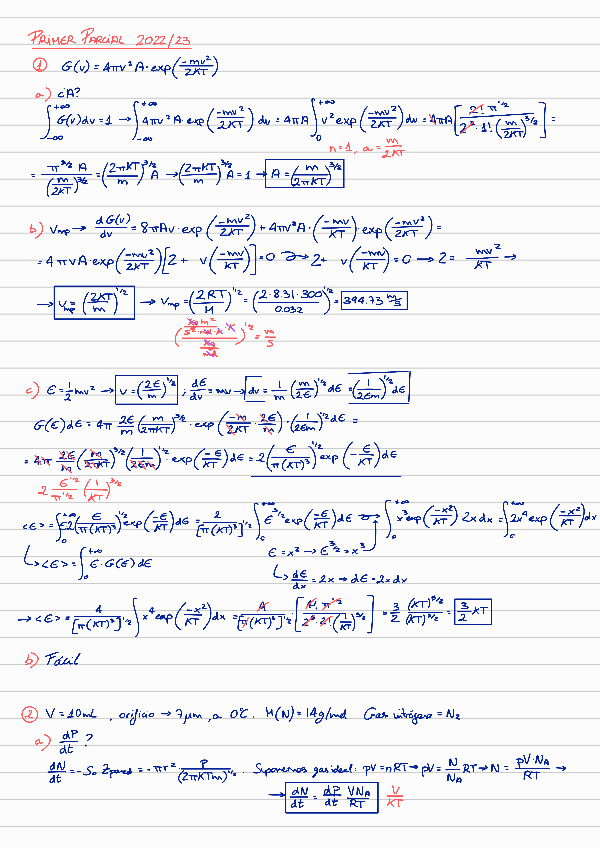 PRIMER PARCIAL 2022/23
① G(v) = 4πv² A · exp(-mv²/2KT)
a) ¿A?
∫_{-∞}^{+∞} G(v)dv = 1 → ∫_{-∞}^{+∞} 4πv² A · exp(-mv²/2KT) dv = 4πA ∫_0^{+∞} v² exp(-mv²/2KT) dv = 4πA [2! π^{1/2} / (2² · 1! · (m/2KT)^{3/2})] =
n=1, a = m/2KT
= π^{3/2} A / (m/2KT)^{3/2} = (2πKT/m)^{3/2} A → (2πKT/m)^{3/2} A = 1 → A = (m/2πKT)^{3/2}
b) V_mp → dG(v)/dv = 8πAv · exp(-mv²/2KT) + 4πv²A · (-mv/KT) · exp(-mv²/2KT) =
= 4πvA · exp(-mv²/2KT) [2 + v(-mv/KT)] = 0 → 2 + v(-mv/KT) = 0 → 2 = mv²/KT →
→ V_mp = (2KT/m)^{1/2} → V_mp = (2RT/M)^{1/2} = (2·8.31·300/0.032)^{1/2} = 394.73 m/s
(kg m²/s² · mol · K · K / kg/mol)^{1/2} = m/s
c) Є = 1/2 mv² → v = (2Є/m)^{1/2} ; dЄ/dv = mv → dv = 1/m (m/2Є)^{1/2} dЄ = (1/2Єm)^{1/2} dЄ
G(Є)dЄ = 4π 2Є/m (m/2πKT)^{3/2} · exp(-m/2KT · 2Є/m) · (1/2Єm)^{1/2} dЄ =
= 4π 2Є/m (m/2πKT)^{3/2} (1/2Єm)^{1/2} exp(-Є/KT) dЄ = 2(Є/π(KT)³)^{1/2} exp(-Є/KT) dЄ
2 Є^{1/2}/π^{1/2} (1/KT)^{3/2}
<Є> = ∫_0^{+∞} Є2(Є/π(KT)³)^{1/2} exp(-Є/KT) dЄ = 2/[π(KT)³]^{1/2} ∫_0^{+∞} Є^{3/2} exp(-Є/KT) dЄ → ∫_0^{+∞} x³ exp(-x²/KT) 2x dx = ∫_0^{+∞} 2x⁴ exp(-x²/KT) dx
↳ <Є> = ∫_0^{+∞} Є · G(Є) dЄ
Є = x² → Є^{3/2} = x³
↳ dЄ/dx = 2x → dЄ = 2x dx
→ <Є> = 4/[π(KT)³]^{1/2} ∫_0 x⁴ exp(-x²/KT) dx = 4/[π(KT)³]^{1/2} · [4! π^{1/2} / (2⁵ · 2! · (1/KT)^{5/2})] = 3/2 (KT)^{5/2}/(KT)^{3/2} = 3/2 KT
b) Fácil
② V = 10mL, orificio → 7μm, a 0ºC. M(N) = 14g/mol Gas nitrógeno = N₂
a) dP/dt ?
dN/dt = -S₀ Z_pared = -πr² P/(2πKTm)^{1/2}. Suponemos gas ideal: pV = nRT → pV = N/N_A RT → N = pV·N_A/RT →
→ dN/dt = dP/dt VN_A/RT V/KT